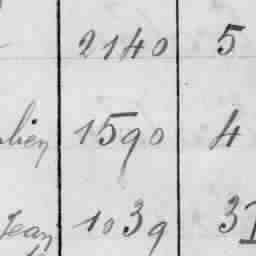 2140 5
1590 4
Jean 1039 3